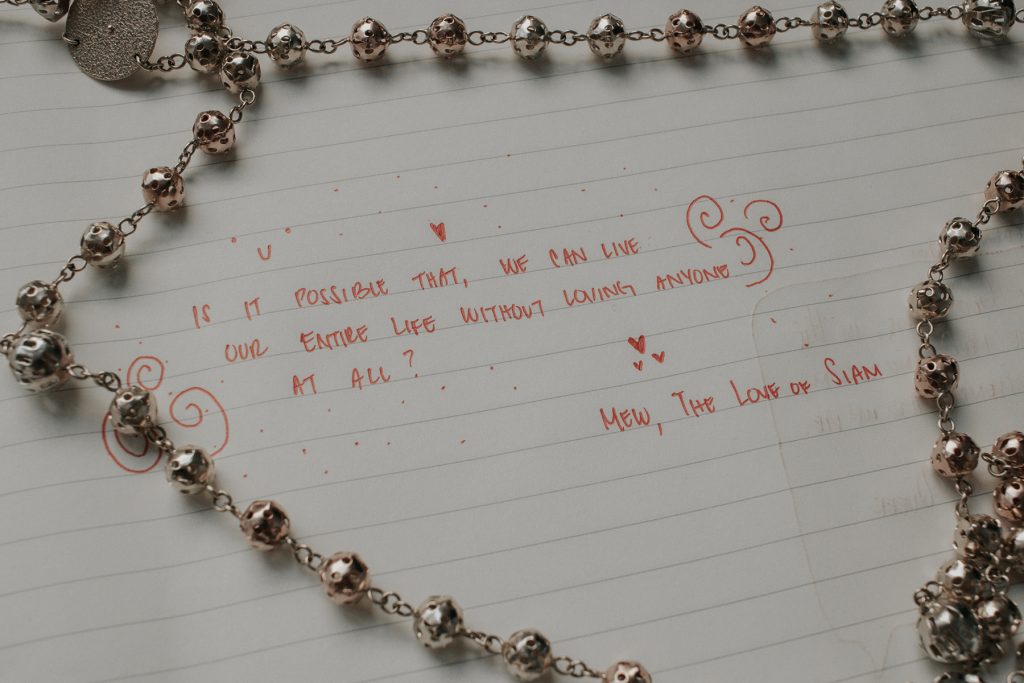 IS IT POSSIBLE THAT, WE CAN LIVE
OUR ENTIRE LIFE WITHOUT LOVING ANYONE
AT ALL?
MEW, THE LOVE OF SIAM